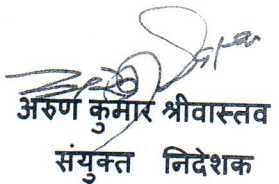 अरुण कुमार श्रीवास्तव
संयुक्त निदेशक